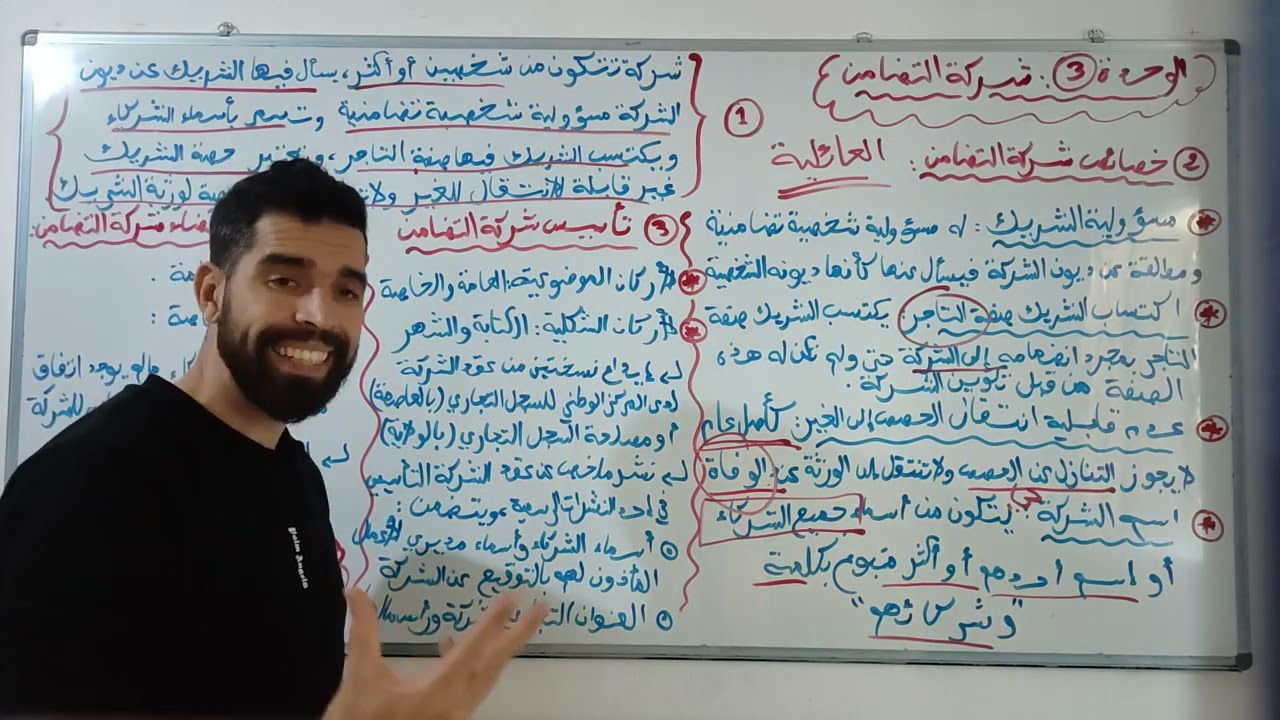 الوحدة ③ : شركة التضامن
①
شركة تتكون من شخصين أو أكثر، يسأل فيها الشريك عن ديون
الشركة مسؤولية شخصية تضامنية وتسمى بأسماء الشركاء
ويكتسب الشريك فيها صفة التاجر، وتعتبر حصة الشريك
غير قابلة للانتقال للغير ولا لورثة الشريك
② خصائص شركة التضامن : العائلية
* مسؤولية الشريك : له مسؤولية شخصية تضامنية
ومطلقة عن ديون الشركة فيسأل عنها كأنها ديونه الشخصية
* اكتساب الشريك صفة التاجر: يكتسب الشريك صفة
التاجر بمجرد انضمامه إلى الشركة حتى ولم تكن له هذه
الصفة من قبل تكوين الشركة .
* عدم قابلية انتقال الحصص إلى الغير: كأصل عام
لا يجوز التنازل عن الحصص ولا تنتقل إلى الورثة عن الوفاة
* اسم الشركة : يتكون من أسماء جميع الشركاء
أو اسم أحدهم أو أكثر متبوع بكلمة
"وشركائهم"
③ تأسيس شركة التضامن
* الأركان الموضوعية: العامة والخاصة
* الأركان الشكلية: الكتابة والشهر
إيداع نسختين من عقد الشركة
لدى المركز الوطني للسجل التجاري (بالعاصمة)
أو مصلحة السجل التجاري (بالولاية)
نشر ملخص عن عقد الشركة التأسيسي
في إحدى النشرات الرسمية، ويتضمن :
أسماء الشركاء وأسماء مديري الأعمال
المأذون لهم بالتوقيع عن الشركة
العنوان
انقضاء شركة التضامن:
مالم يوجد اتفاق
للشركة
Palm Angels